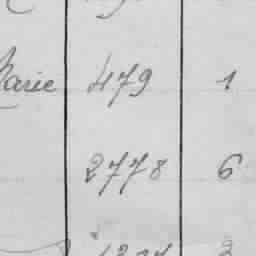 Marie 479 1
2778 6